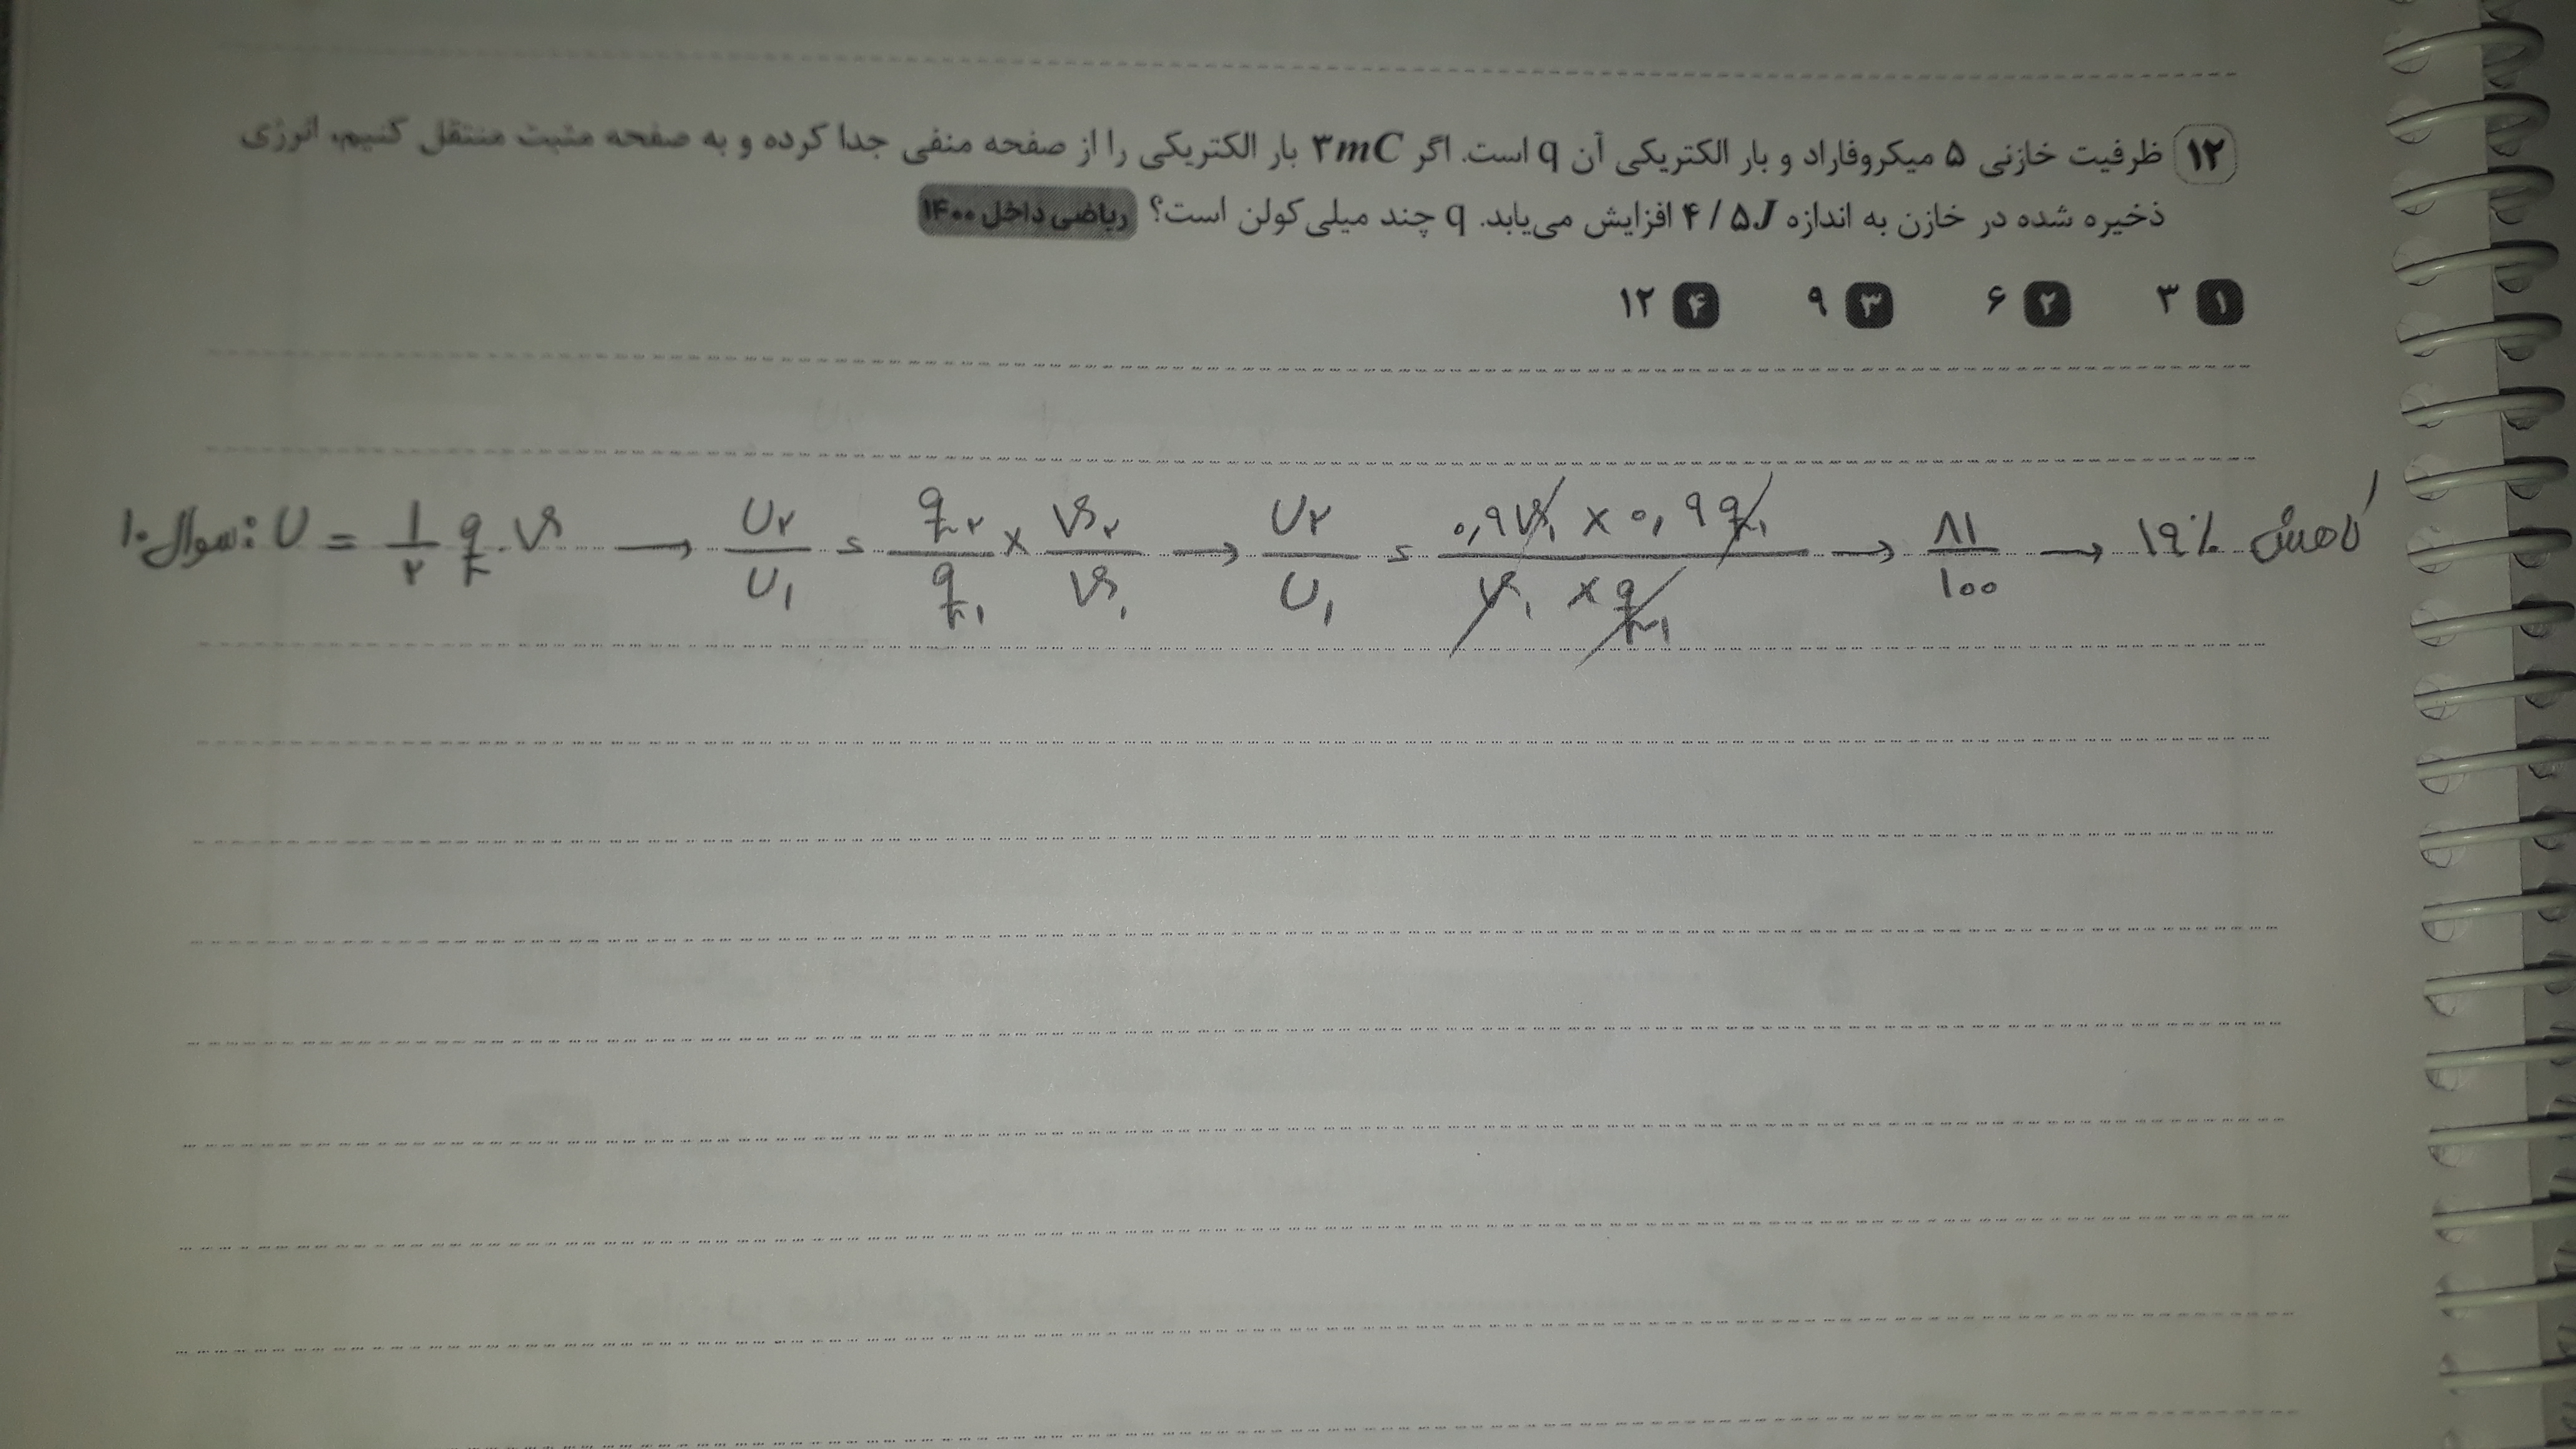 ۱۲ ظرفیت خازنی ۵ میکروفاراد و بار الکتریکی آن q است. اگر ۳mC بار الکتریکی را از صفحه منفی جدا کرده و به صفحه مثبت منتقل کنیم، انرژی
ذخیره شده در خازن به اندازه ۴/۵J افزایش می‌یابد. q چند میلی‌کولن است؟ ریاضی داخل ۱۴۰۰
۱ ۳ ۲ ۶ ۳ ۹ ۴ ۱۲
سوال ۱۰: U = ۱/۲ q.V → U۲/U۱ = q۲/q۱ × V۲/V۱ → U۲/U۱ = ۰,۹V۱ × ۰,۹q۱ / V۱ × q۱ → ۸۱/۱۰۰ → ۱۹٪ کاهش